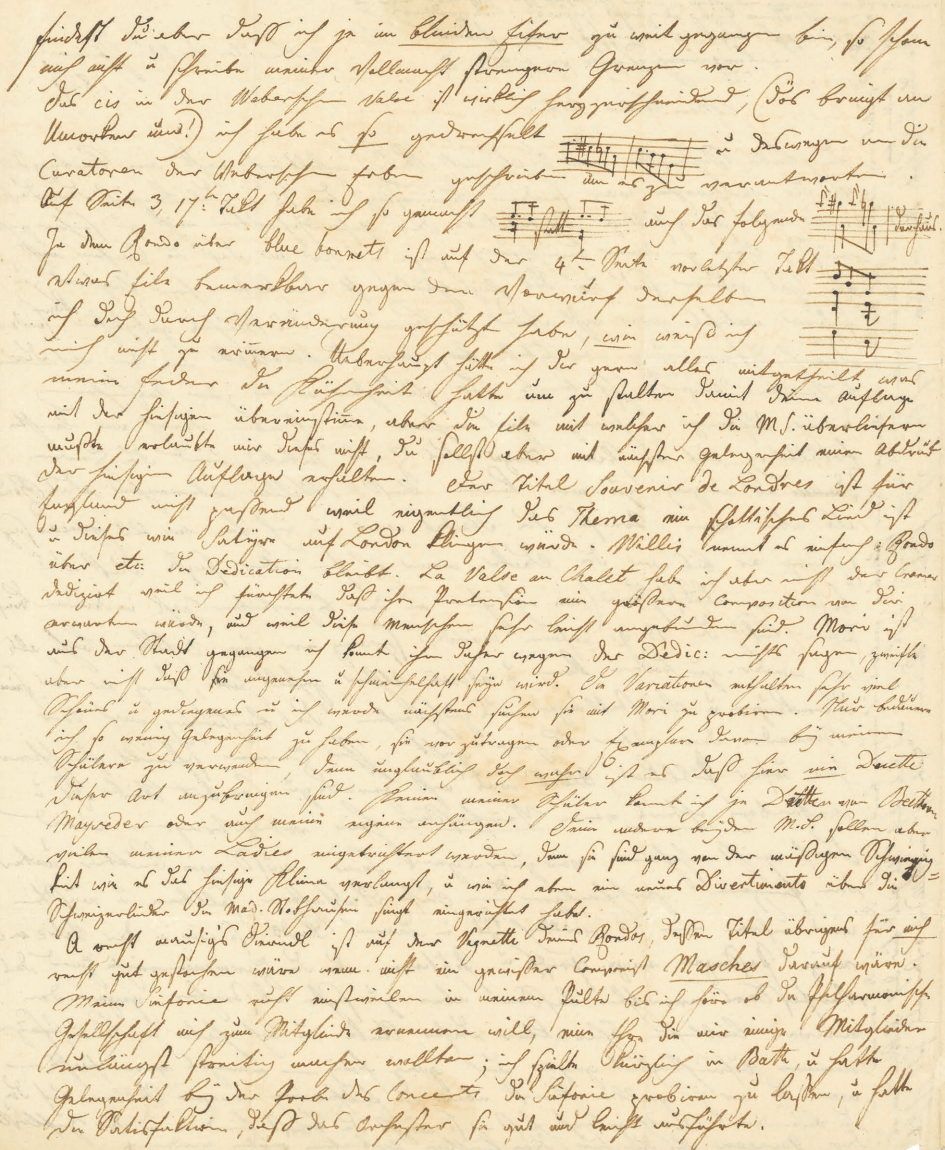 findest du aber daß ich je im blinden Eifer zu weit gegangen bin, so schone
mich nicht u schreibe meiner Vollmacht strengere Grenzen vor.
Das cis in der Weberschen Valse ist wirklich herzzerschneidend, (dös bringt an
um!) ich habe es so gedrechselt u deswegen an die
Curatoren der Weberschen Erben geschrieben um es zu verantworten.
Auf Seite 3, 17ter Takt habe ich so gemacht statt auch das folgende
In dem Rondo über blue bonnets ist auf der 4ten Seite vorletzter Takt
etwas Eile bemerkbar gegen den Vorwurf derselben
ich dich durch Veränderung geschützt habe, wie weiß ich
mich nicht zu erinnern. Ueberhaupt hätte ich dir gern alles mitgetheilt was
meine Feder die Kühnheit hatte um zu stalten damit deine Auflage
mit der hiesigen übereinstimme, aber die Eile mit welcher ich die M.S. überliefern
mußte erlaubte mir dieses nicht, du sollst aber mit nächster Gelegenheit einen Abdruck
der hiesigen Auflage erhalten. Der Titel Souvenir de Londres ist für
England nicht passend weil eigentlich das Thema ein schottisches Lied ist
u dieses wie Satyre auf London klingen würde. Willis nennt es einfach: Rondo
über etc: die Dedication bleibt. La Valse au Chalet habe ich aber nicht der Cramer
dedizirt weil ich fürchtete daß ihre Pretension eine größere Composition von dir
erwarten würde, und weil diese Menschen sehr leicht angebunden sind. Mori ist
aus der Stadt gegangen ich konnte ihm daher wegen der Dedic: nichts sagen, zweifle
aber nicht daß sie angenehm u schmeichelhaft seyn wird. Die Variationen enthalten sehr viel
Schönes u gediegenes u ich werde nächstens suchen sie mit Mori zu probiren. Nur bedaure
ich so wenig Gelegenheit zu haben, sie vorzutragen oder Exemplare davon bey meinen
Schülern zu verwenden, denn unglaublich doch wahr ist es daß hier nie Duette
dieser Art anzubringen sind. Keinen meiner Schüler konnt ich je Duetten von Beethoven
Mayseder oder auch meine eigene anhängen. Deine andern beyden M.S. sollen aber
vielen meiner Ladies eingetrichtert werden, denn sie sind ganz von der mäßigen Schwierig
keit wie es das hiesige Klima verlangt, u wie ich eben ein neues Divertimento über die
Schweizerlieder die Mad. Stokhausen singt eingerichtet habe.
A recht mausig's Dierndl ist auf der Vignette deines Rondos, dessen Titel übrigens für mich
recht gut gestochen wäre wenn nicht ein gewisser Componist Masches darauf wäre.
Meine Sinfonie ruht einstweilen in meinem Pulte bis ich höre ob die Philharmonische
Gesellschaft mich zum Mitgliede ernennen will, eine Ehre die mir einige Mitglieder
unlängst streitig machen wollten; ich spielte kürzlich in Bath, u hatte
Gelegenheit bey der Probe des Concerts die Sinfonie probiren zu lassen, u hatte
die Satisfaktion, daß das Orchester sie gut und leicht ausführte.